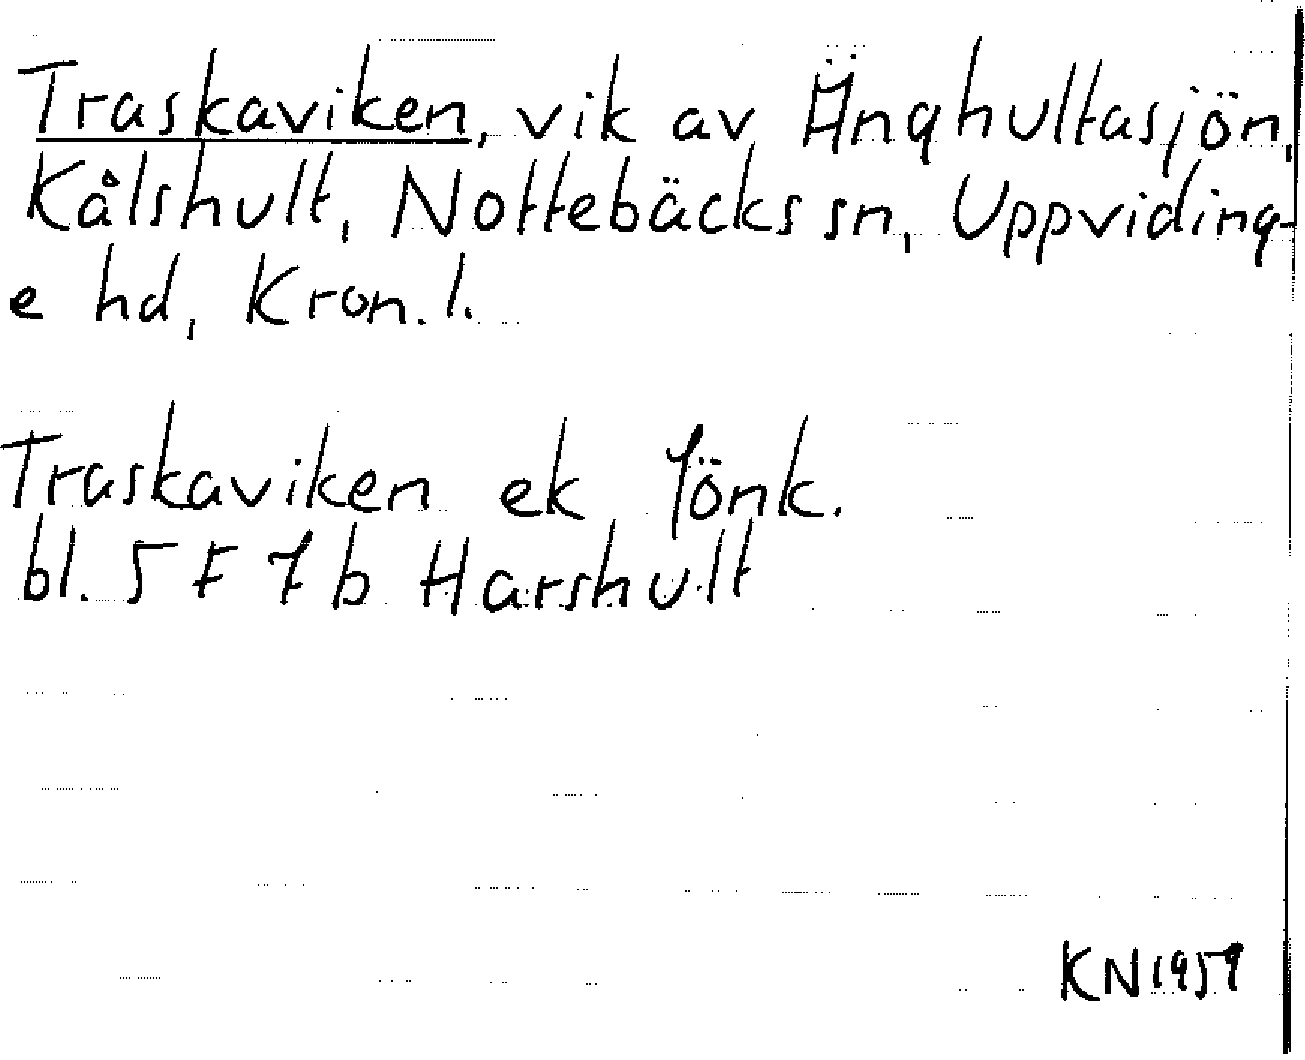 Traskaviken, vik av Änghultasjön,
Kålshult, Nottebäcks sn, Uppviding-
e hd, Kron. l.
Traskaviken ek Jönk.
bl. 5 F 7 b Harshult
KN 1959